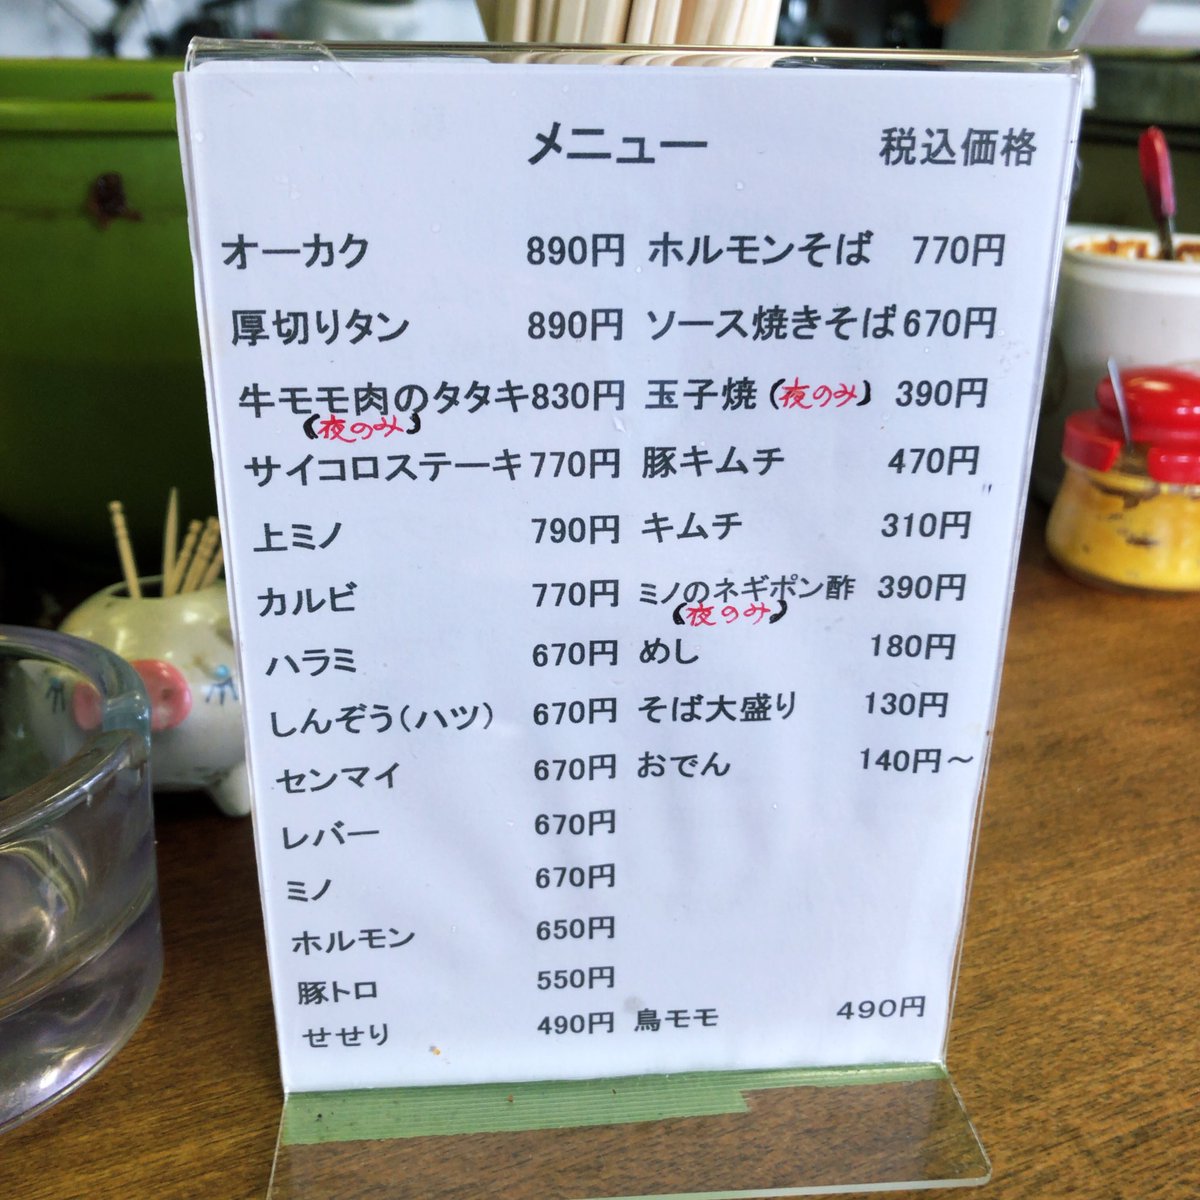 メニュー 税込価格
オーカク 890円 ホルモンそば 770円
厚切りタン 890円 ソース焼きそば 670円
牛モモ肉のタタキ 830円 玉子焼(夜のみ) 390円
(夜のみ)
サイコロステーキ 770円 豚キムチ 470円
上ミノ 790円 キムチ 310円
カルビ 770円 ミノのネギポン酢 390円
(夜のみ)
ハラミ 670円 めし 180円
しんぞう(ハツ) 670円 そば大盛り 130円
センマイ 670円 おでん 140円～
レバー 670円
ミノ 670円
ホルモン 650円
豚トロ 550円
せせり 490円 鳥モモ 490円